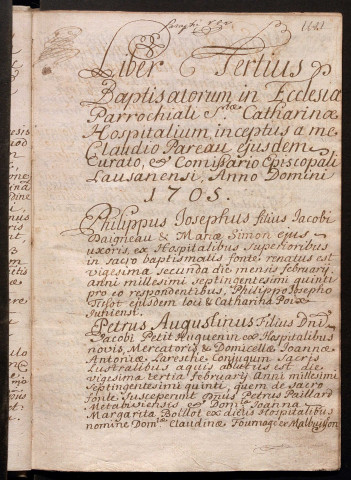 Liber Tertius
Baptisatorum in Ecclesia
Parrochiali S.tæ Catharinæ
Hospitalium inceptus a me
Claudio Pareau ejusdem
Curato, & Comissario Episcopali
Lausanensi, Anno Domini
1705.
Philippus Josephus filius Jacobi
Daigneau & Mariæ Simon ejus
uxoris, ex Hospitalibus Superioribus
in sacro baptismatis fonte renatus est
vigesima secunda die mensis february,
anni millesimi septingentesimi quinti
pro eo respondentibus, Philippo Josepho
Tissot ejusdem loci & Catharina
Petrus Augustinus Filius Dni
Jacobi Petit Huguenin ex Hospitalibus
novis, Mercatoris & Domicellæ Joannæ
Antoniæ Laresche Conjugum Sacris
Lustralibus aquis ablutus est die
vigesima tertia february Anni millesimi
Septingentesimi quinti, quem de sacro
fonte Susceperunt Petrus Paillard
& Joanna
Margarita Boillot ex dictis Hospitalibus
nomine Claudinæ